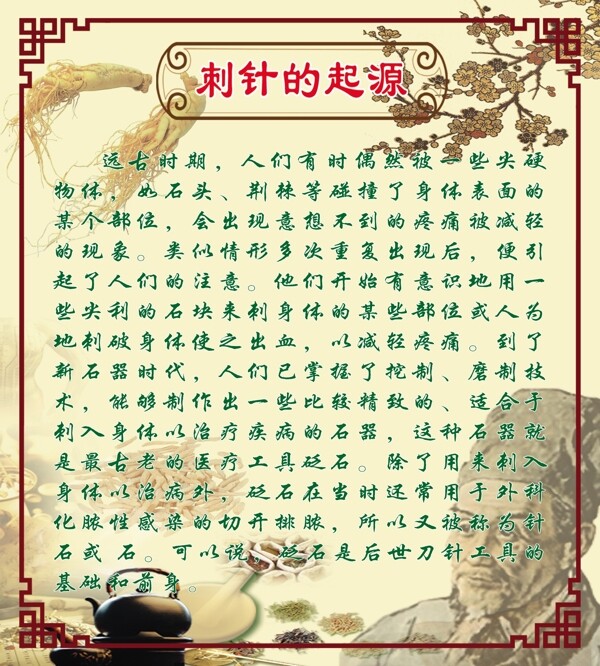 刺针的起源
远古时期，人们有时偶然被一些尖硬
物体，如石头、荆棘等碰撞了身体表面的
某个部位，会出现意想不到的疼痛被减轻
的现象。类似情形多次重复出现后，便引
起了人们的注意。他们开始有意识地用一
些尖利的石块来刺身体的某些部位或人为
地刺破身体使之出血，以减轻疼痛。到了
新石器时代，人们已掌握了挖制、磨制技
术，能够制作出一些比较精致的、适合于
刺入身体以治疗疾病的石器，这种石器就
是最古老的医疗工具砭石。除了用来刺入
身体以治病外，砭石在当时还常用于外科
化脓性感染的切开排脓，所以又被称为针
石或 石。可以说，砭石是后世刀针工具的
基础和前身。